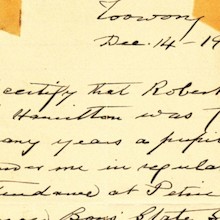 Toowong
Dec. 14-19
certify that Robert
Hamilton was f
any years a pupi
der me in regula
tendance at Petrie
Boys' State S